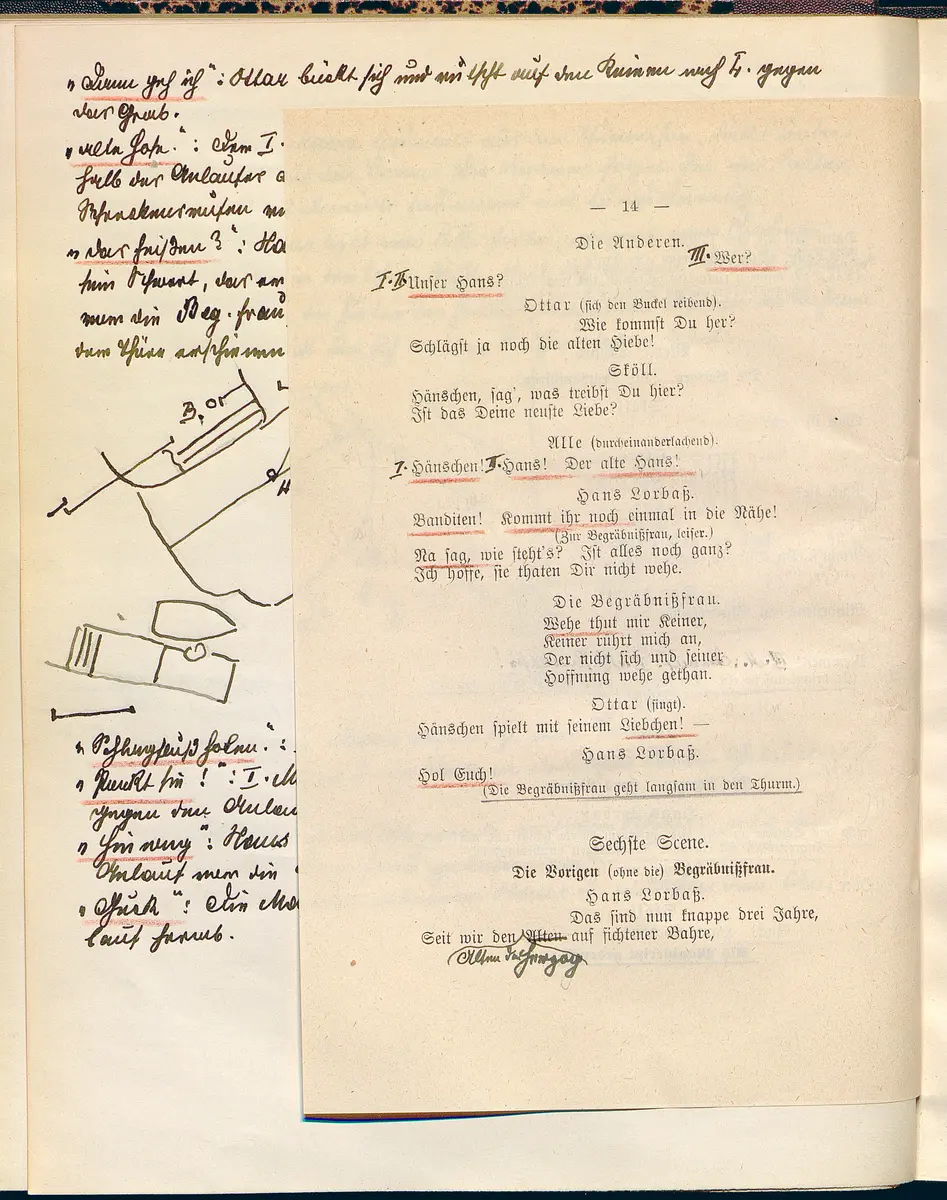 „Dann geh ich“: Ottar bückt sich und rutscht auf den Knieen nach L. gegen
das Grab.
„alte Hose.“: Dem I.
halb des Anlaufes
Schreckensrufen
„das heißen?“:
sein Schwert, das er
wenn die Beg. frau
der Thüre erschienen
„Schlagfluß holen.“:
„Punkt hin!“: I.
gegen den
„hinweg“: Hans
Anlauf wenn die
„Guck“: Die
lauf herab.
— 14 —
Die Anderen.
III. Wer?
I. II. Unser Hans?
Ottar (sich den Buckel reibend).
Wie kommst Du her?
Schlägst ja noch die alten Hiebe!
Sköll.
Hänschen, sag', was treibst Du hier?
Ist das Deine neuste Liebe?
Alle (durcheinanderlachend).
I. Hänschen! II. Hans! Der alte Hans!
Hans Lorbaß.
Banditen! Kommt ihr noch einmal in die Nähe!
(Zur Begräbnißfrau, leiser.)
Na sag, wie steht's? Ist alles noch ganz?
Ich hoffe, sie thaten Dir nicht wehe.
Die Begräbnißfrau.
Wehe thut mir Keiner,
Keiner rührt mich an,
Der nicht sich und seiner
Hoffnung wehe gethan.
Ottar (singt).
Hänschen spielt mit seinem Liebchen! —
Hans Lorbaß.
Hol Euch!
(Die Begräbnißfrau geht langsam in den Thurm.)
Sechste Scene.
Die Vorigen (ohne die) Begräbnißfrau.
Hans Lorbaß.
Das sind nun knappe drei Jahre,
Seit wir den Alten auf fichtener Bahre,
Alten Herzog